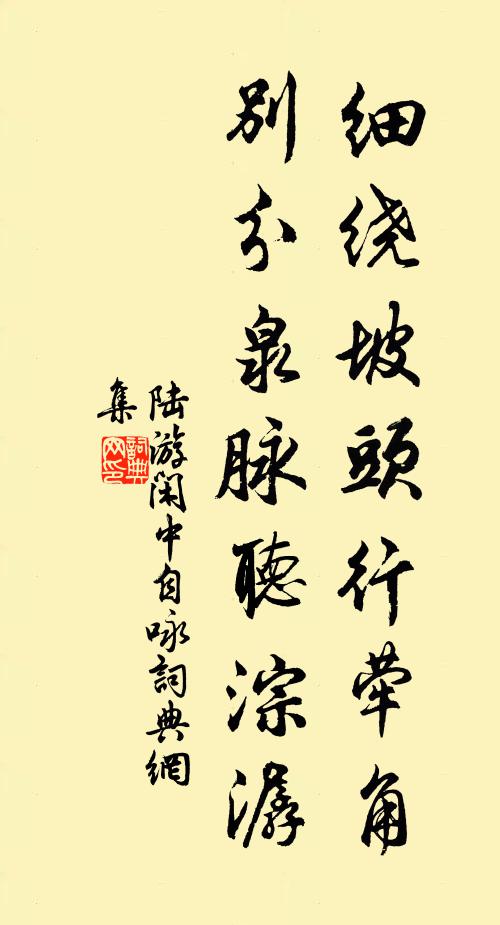 细绕坡頭行荦角
别分泉脉聽淙潺
陆游闲中自咏詞典網
集
詞典网印